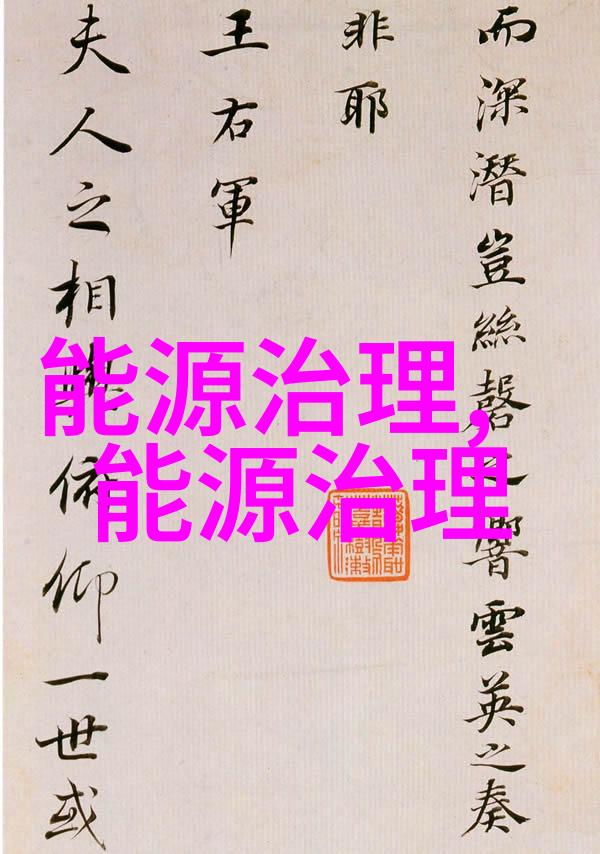 而深潛豈絲磬之響雲英之奏
非耶
王右軍
夫人之相與俯仰一世或
能源治理,
能源治理